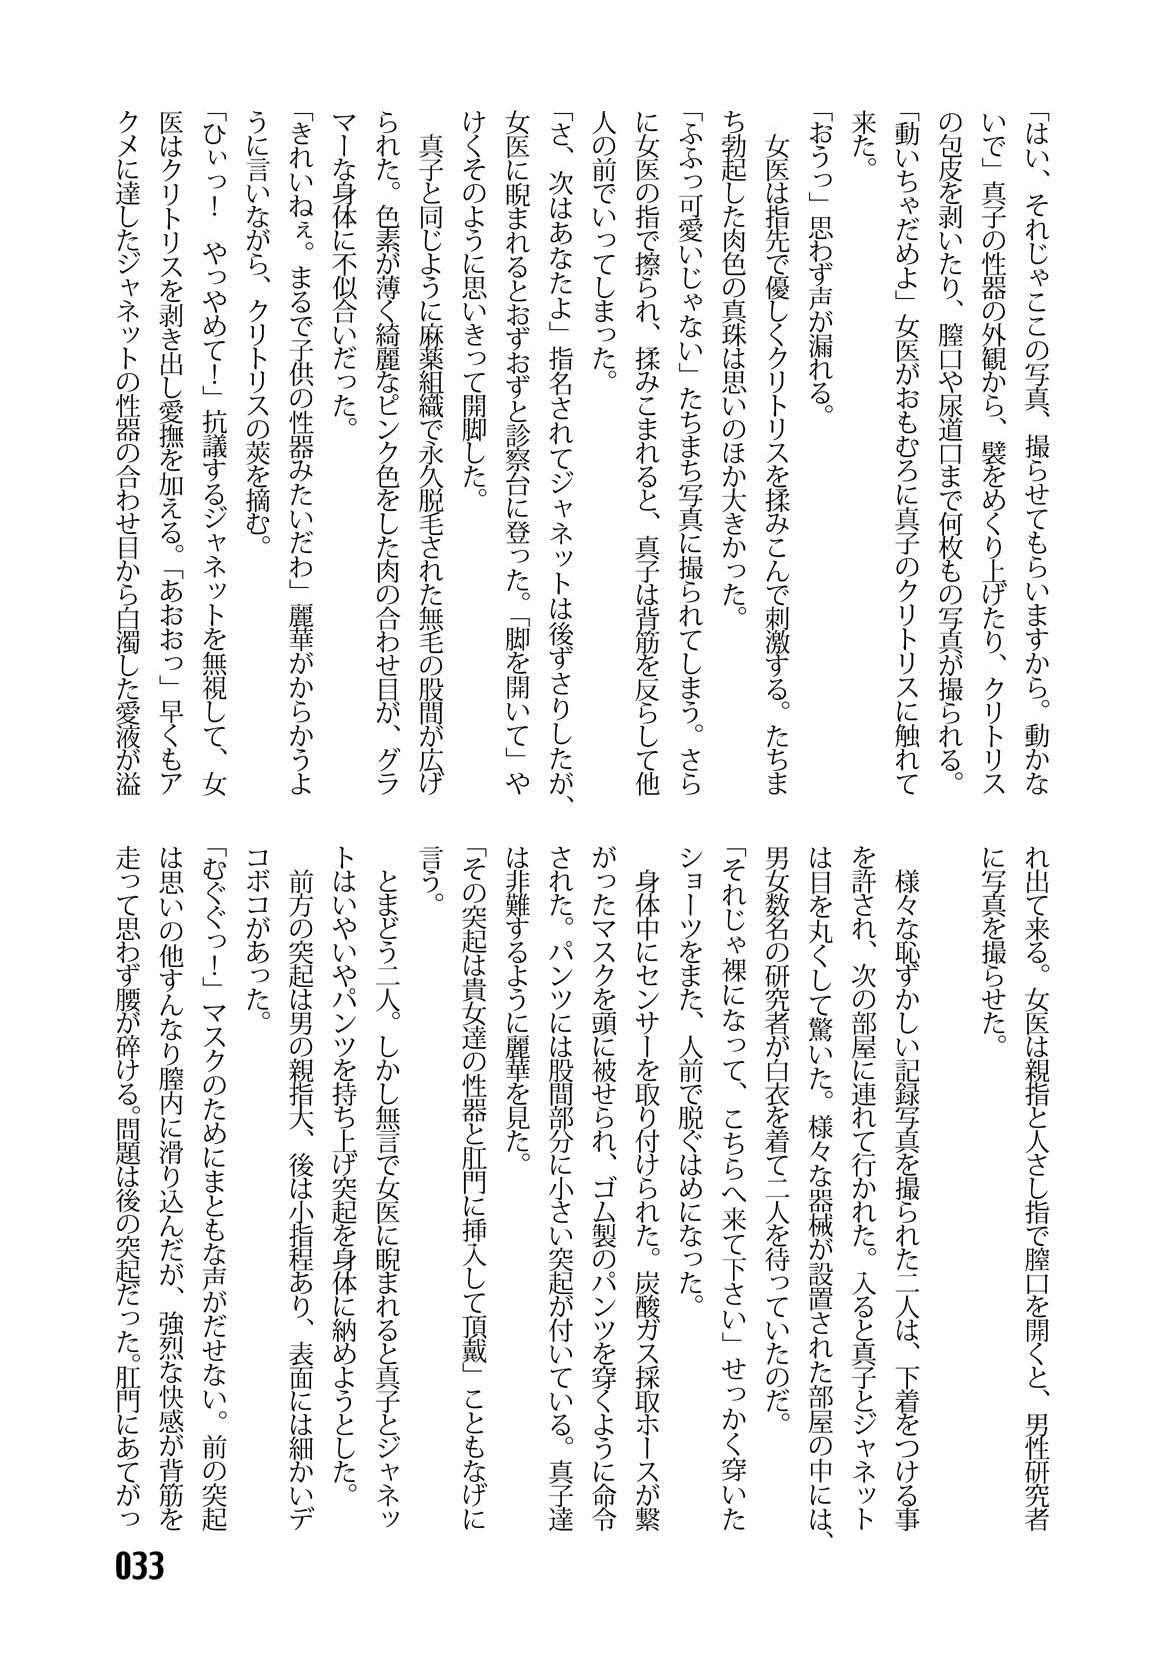 「はい、それじゃここの写真、撮らせてもらいますから。動かな
いで」真子の性器の外観から、襞をめくり上げたり、クリトリス
の包皮を剥いたり、膣口や尿道口まで何枚もの写真が撮られる。
「動いちゃだめよ」女医がおもむろに真子のクリトリスに触れて
来た。
「おうっ」思わず声が漏れる。
女医は指先で優しくクリトリスを揉みこんで刺激する。たちま
ち勃起した肉色の真珠は思いのほか大きかった。
「ふふっ可愛いじゃない」たちまち写真に撮られてしまう。さら
に女医の指で擦られ、揉みこまれると、真子は背筋を反らして他
人の前でいってしまった。
「さ、次はあなたよ」指名されてジャネットは後ずさりしたが、
女医に睨まれるとおずおずと診察台に登った。「脚を開いて」や
けくそのように思いきって開脚した。
真子と同じように麻薬組織で永久脱毛された無毛の股間が広げ
られた。色素が薄く綺麗なピンク色をした肉の合わせ目が、グラ
マーな身体に不似合いだった。
「きれいねぇ。まるで子供の性器みたいだわ」麗華がからかうよ
うに言いながら、クリトリスの莢を摘む。
「ひぃっ！　やっやめて！」抗議するジャネットを無視して、女
医はクリトリスを剥き出し愛撫を加える。「あおおっ」早くもア
クメに達したジャネットの性器の合わせ目から白濁した愛液が溢
れ出て来る。女医は親指と人さし指で膣口を開くと、男性研究者
に写真を撮らせた。
様々な恥ずかしい記録写真を撮られた二人は、下着をつける事
を許され、次の部屋に連れて行かれた。入ると真子とジャネット
は目を丸くして驚いた。様々な器械が設置された部屋の中には、
男女数名の研究者が白衣を着て二人を待っていたのだ。
「それじゃ裸になって、こちらへ来て下さい」せっかく穿いた
ショーツをまた、人前で脱ぐはめになった。
身体中にセンサーを取り付けられた。炭酸ガス採取ホースが繋
がったマスクを頭に被せられ、ゴム製のパンツを穿くように命令
された。パンツには股間部分に小さい突起が付いている。真子達
は非難するように麗華を見た。
「その突起は貴女達の性器と肛門に挿入して頂戴」こともなげに
言う。
とまどう二人。しかし無言で女医に睨まれると真子とジャネッ
トはいやいやパンツを持ち上げ突起を身体に納めようとした。
前方の突起は男の親指大、後は小指程あり、表面には細かいデ
コボコがあった。
「むぐぐっ！」マスクのためにまともな声がだせない。前の突起
は思いの他すんなり膣内に滑り込んだが、強烈な快感が背筋を
走って思わず腰が砕ける。問題は後の突起だった。肛門にあてがっ
033